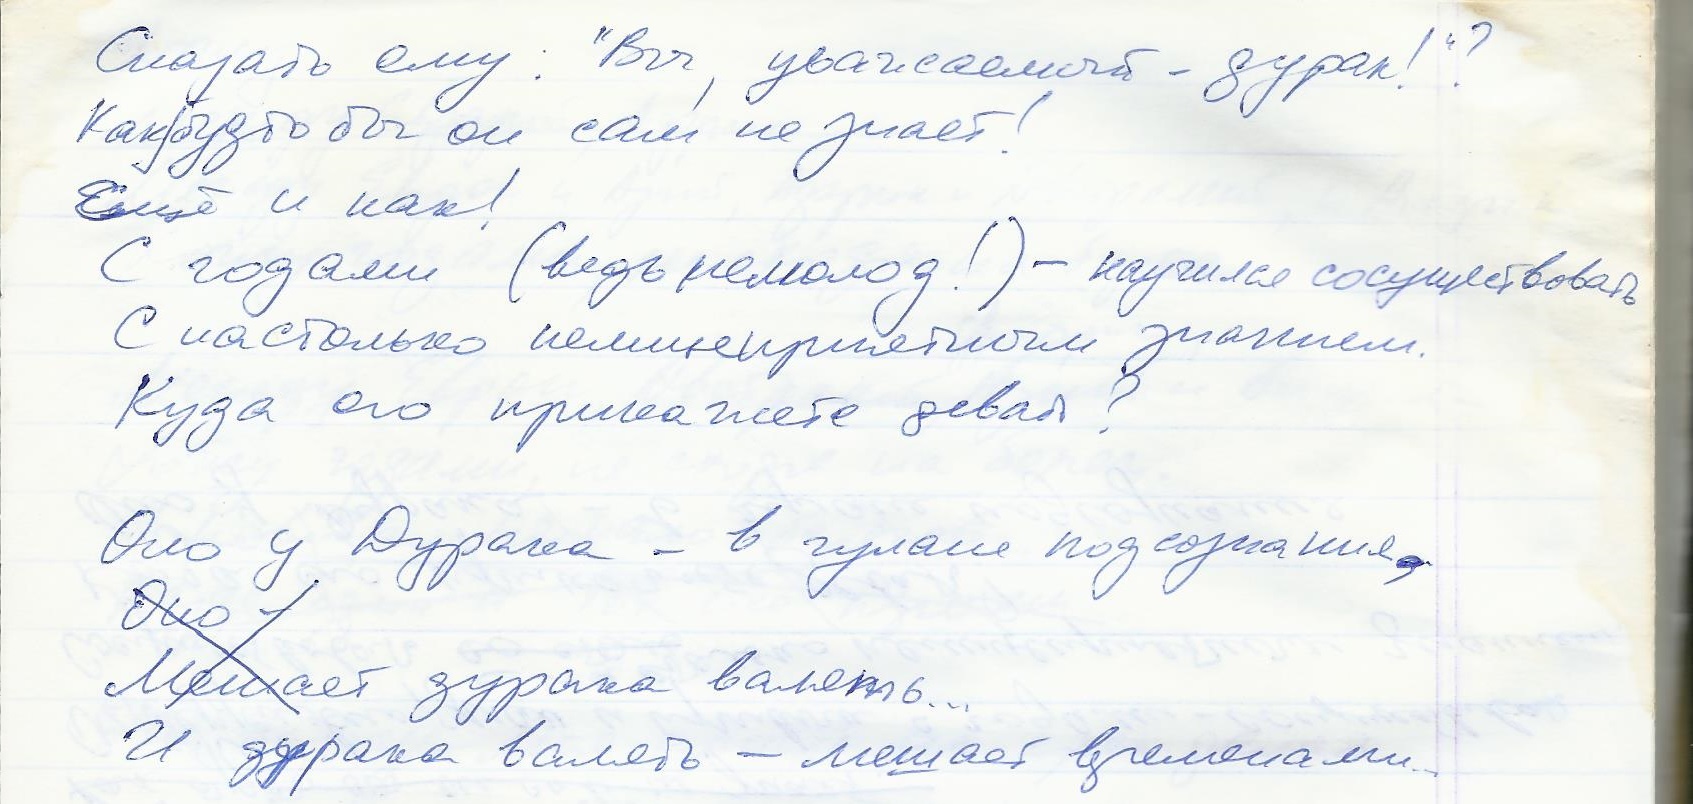 Сказать ему: "Вы, уважаемый - дурак!"?
Как будто бы он сам не знает!
Ещё и как!
С годами (ведь немолод!) - научился сосуществовать
С настолько нелицеприятным знанием.
Куда его прикажете девать?
Оно у Дурака - в чулане подсознания,
Оно -
Мешает дурака валять...
И дурака валять - мешает временами...